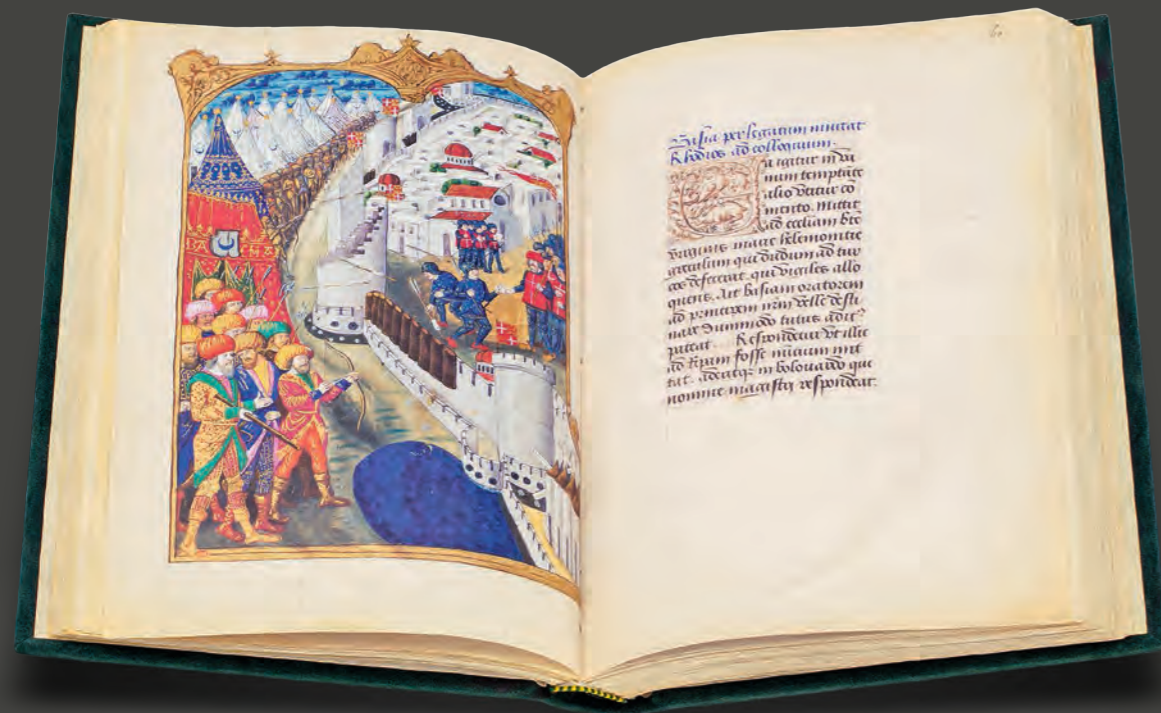 BA CHA
60
Basia per legatum inuitat
Rhodios ad colloquium.
Ea igitur in va
num temptate
alio vtitur co
mento. Mittit
ad eccliam bte
virginis marie helemonitre
greculum qui dudum ad tur
cos defecerat. qui vigiles allo
quens. Ait basiam oratorem
ad principem nrm velle desti
nare dummodo tutus adit
pateat. Respondetur vt illic
ad ripam fosse nuncium mit
tat. aderitq in bolouardo qui
nomine magistri respondeat.